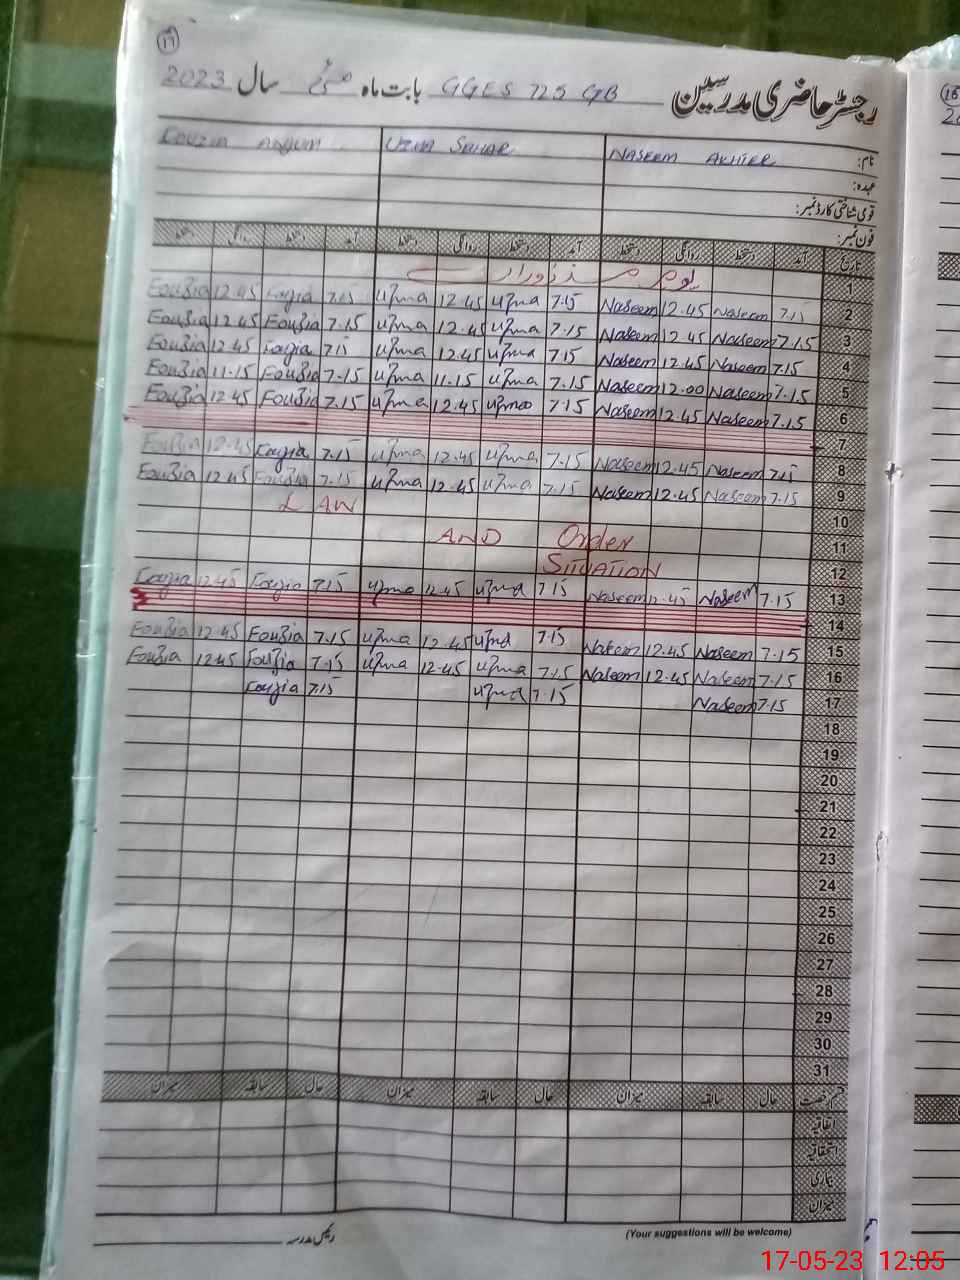 17
رجسٹر حاضری مدرسین GGES 725 GB بابت ماہ مئی سال 2023
نام: NASEEM AKHTER UZMA SAHAR FOUZIA ANJUM
عہدہ:
قومی شناختی کارڈ نمبر:
فون نمبر:
تاریخ آمد دستخط روانگی دستخط آمد دستخط روانگی دستخط آمد دستخط روانگی دستخط
1 یوم مزدوراں
Fouzia 12.45 Fouzia 7.15 Uzma 12.45 Uzma 7.15 Naseem 12.45 Naseem 7.15 2
Fouzia 12.45 Fouzia 7.15 Uzma 12.45 Uzma 7.15 Naseem 12.45 Naseem 7.15 3
Fouzia 12.45 Fouzia 7.15 Uzma 12.45 Uzma 7.15 Naseem 12.45 Naseem 7.15 4
Fouzia 11.15 Fouzia 7.15 Uzma 11.15 Uzma 7.15 Naseem 12.00 Naseem 7.15 5
Fouzia 12.45 Fouzia 7.15 Uzma 12.45 Uzma 7.15 Naseem 12.45 Naseem 7.15 6
7
Fouzia 12.45 Fouzia 7.15 Uzma 12.45 Uzma 7.15 Naseem 12.45 Naseem 7.15 8
Fouzia 12.45 Fouzia 7.15 Uzma 12.45 Uzma 7.15 Naseem 12.45 Naseem 7.15 9
LAW 10
AND Order 11
SITUATION 12
Fouzia 12.45 Fouzia 7.15 Uzma 12.45 Uzma 7.15 Naseem 12.45 Naseem 7.15 13
14
Fouzia 12.45 Fouzia 7.15 Uzma 12.45 Uzma 7.15 Naseem 12.45 Naseem 7.15 15
Fouzia 12.45 Fouzia 7.15 Uzma 12.45 Uzma 7.15 Naseem 12.45 Naseem 7.15 16
Fouzia 7.15 Uzma 7.15 Naseem 7.15 17
18
19
20
21
22
23
24
25
26
27
28
29
30
31
قسم رخصت حال سابقہ میزان حال سابقہ میزان حال سابقہ میزان
اتفاقیہ
استحقاقیہ
بیماری
میزان
رئیس مدرسہ
(Your suggestions will be welcome)
16
17-05-23 12:05